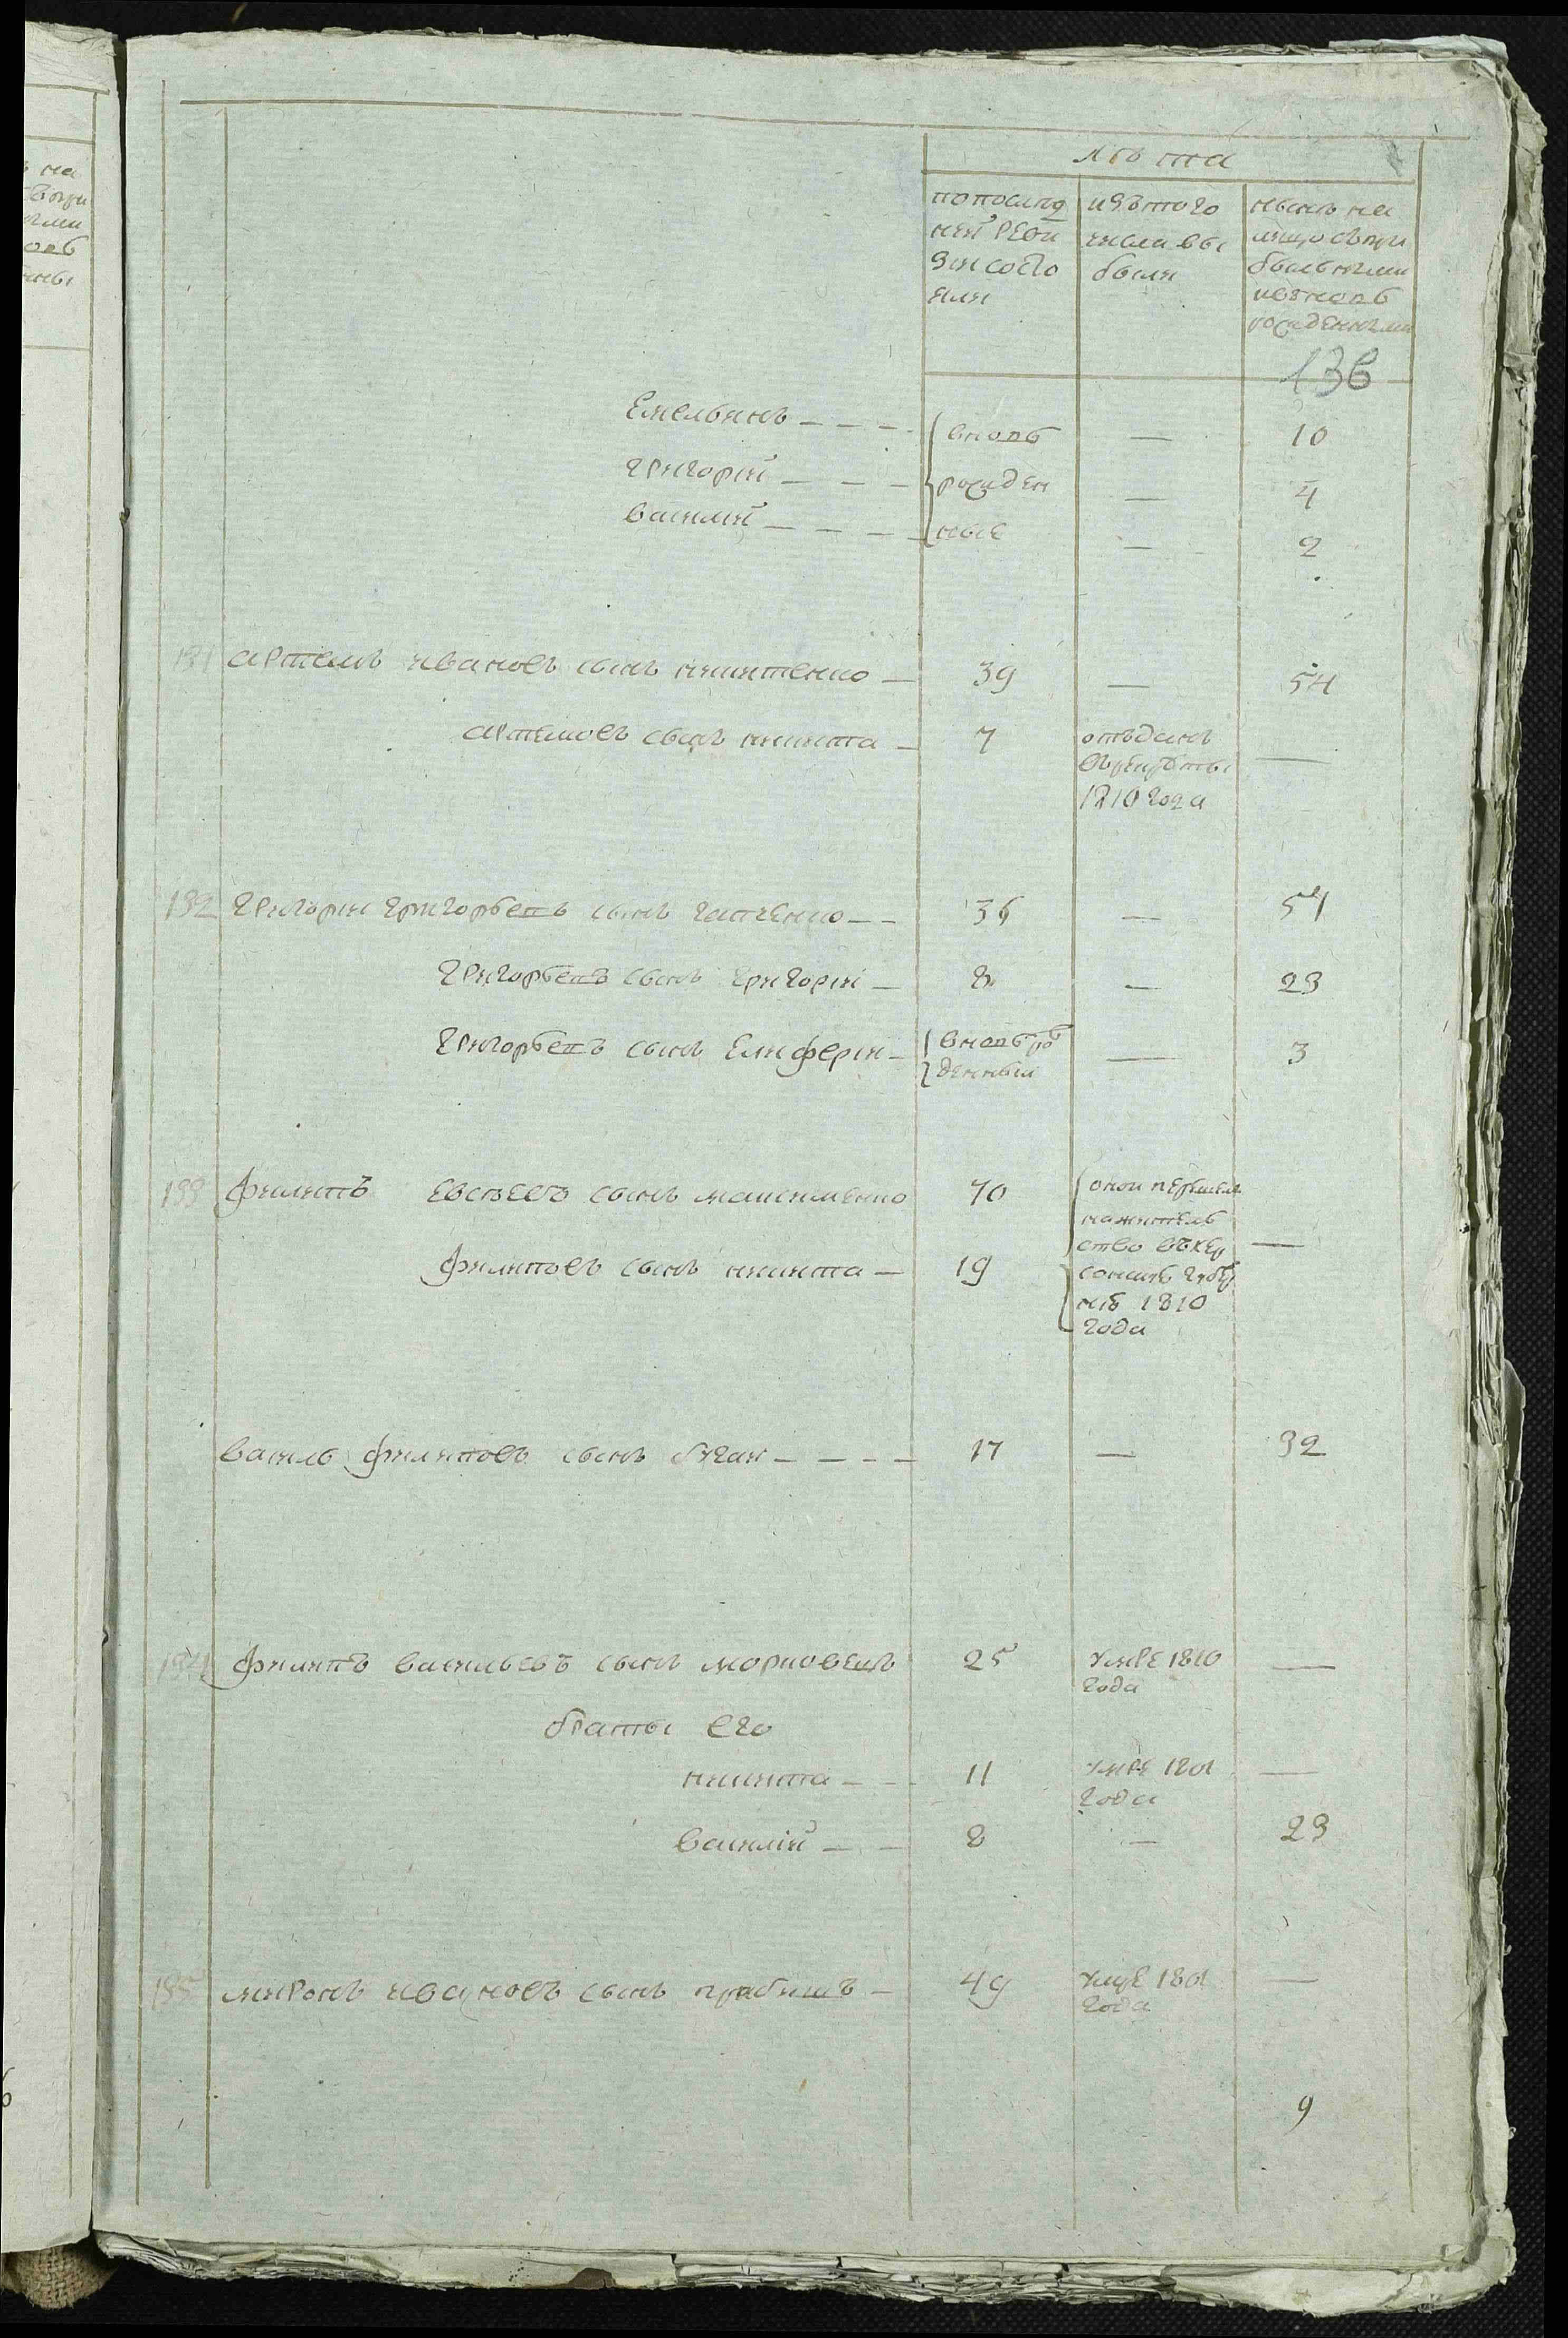 лѣта
попослѣд
ней Реви
зіи состо
яли
изътого
числа вы
были
нынѣ на
лицо съпри
былыми
ивновь
рожденными
136
Емельянъ — — — вновь — 10
Григорій — — — рожден — 4
Василий — — — ные — 2
131 Артемъ Ивановъ сынъ Никитенко — 39 — 54
Артемовъ сынъ Никита — 7 отъданъ —
Въ рекруты
1810 года
132 Григории Григорьевъ сынъ Гапченко — — 36 — 51
Григорьевъ сынъ Григорій — 8 — 23
Григорьевъ сынъ Елиферіи — вновь ро — 3
денныи
133 Филипъ Евсѣевъ сынъ Максименко 70 онои перешелъ
нажитель
ство въ Хер —
Филиповъ сынъ Никита — 19 сонску Губер
нію 1810
года
Василь Филиповъ сынъ — — — — 17 — 32
134 Филипъ Васильевъ сынъ 25 умре 1810 —
года
браты Его
Никита — — 11 умре 1801 —
года
Василіи — — 8 — 23
135 Миронъ Ивановъ сынъ — 49 умре 1801 —
года
9